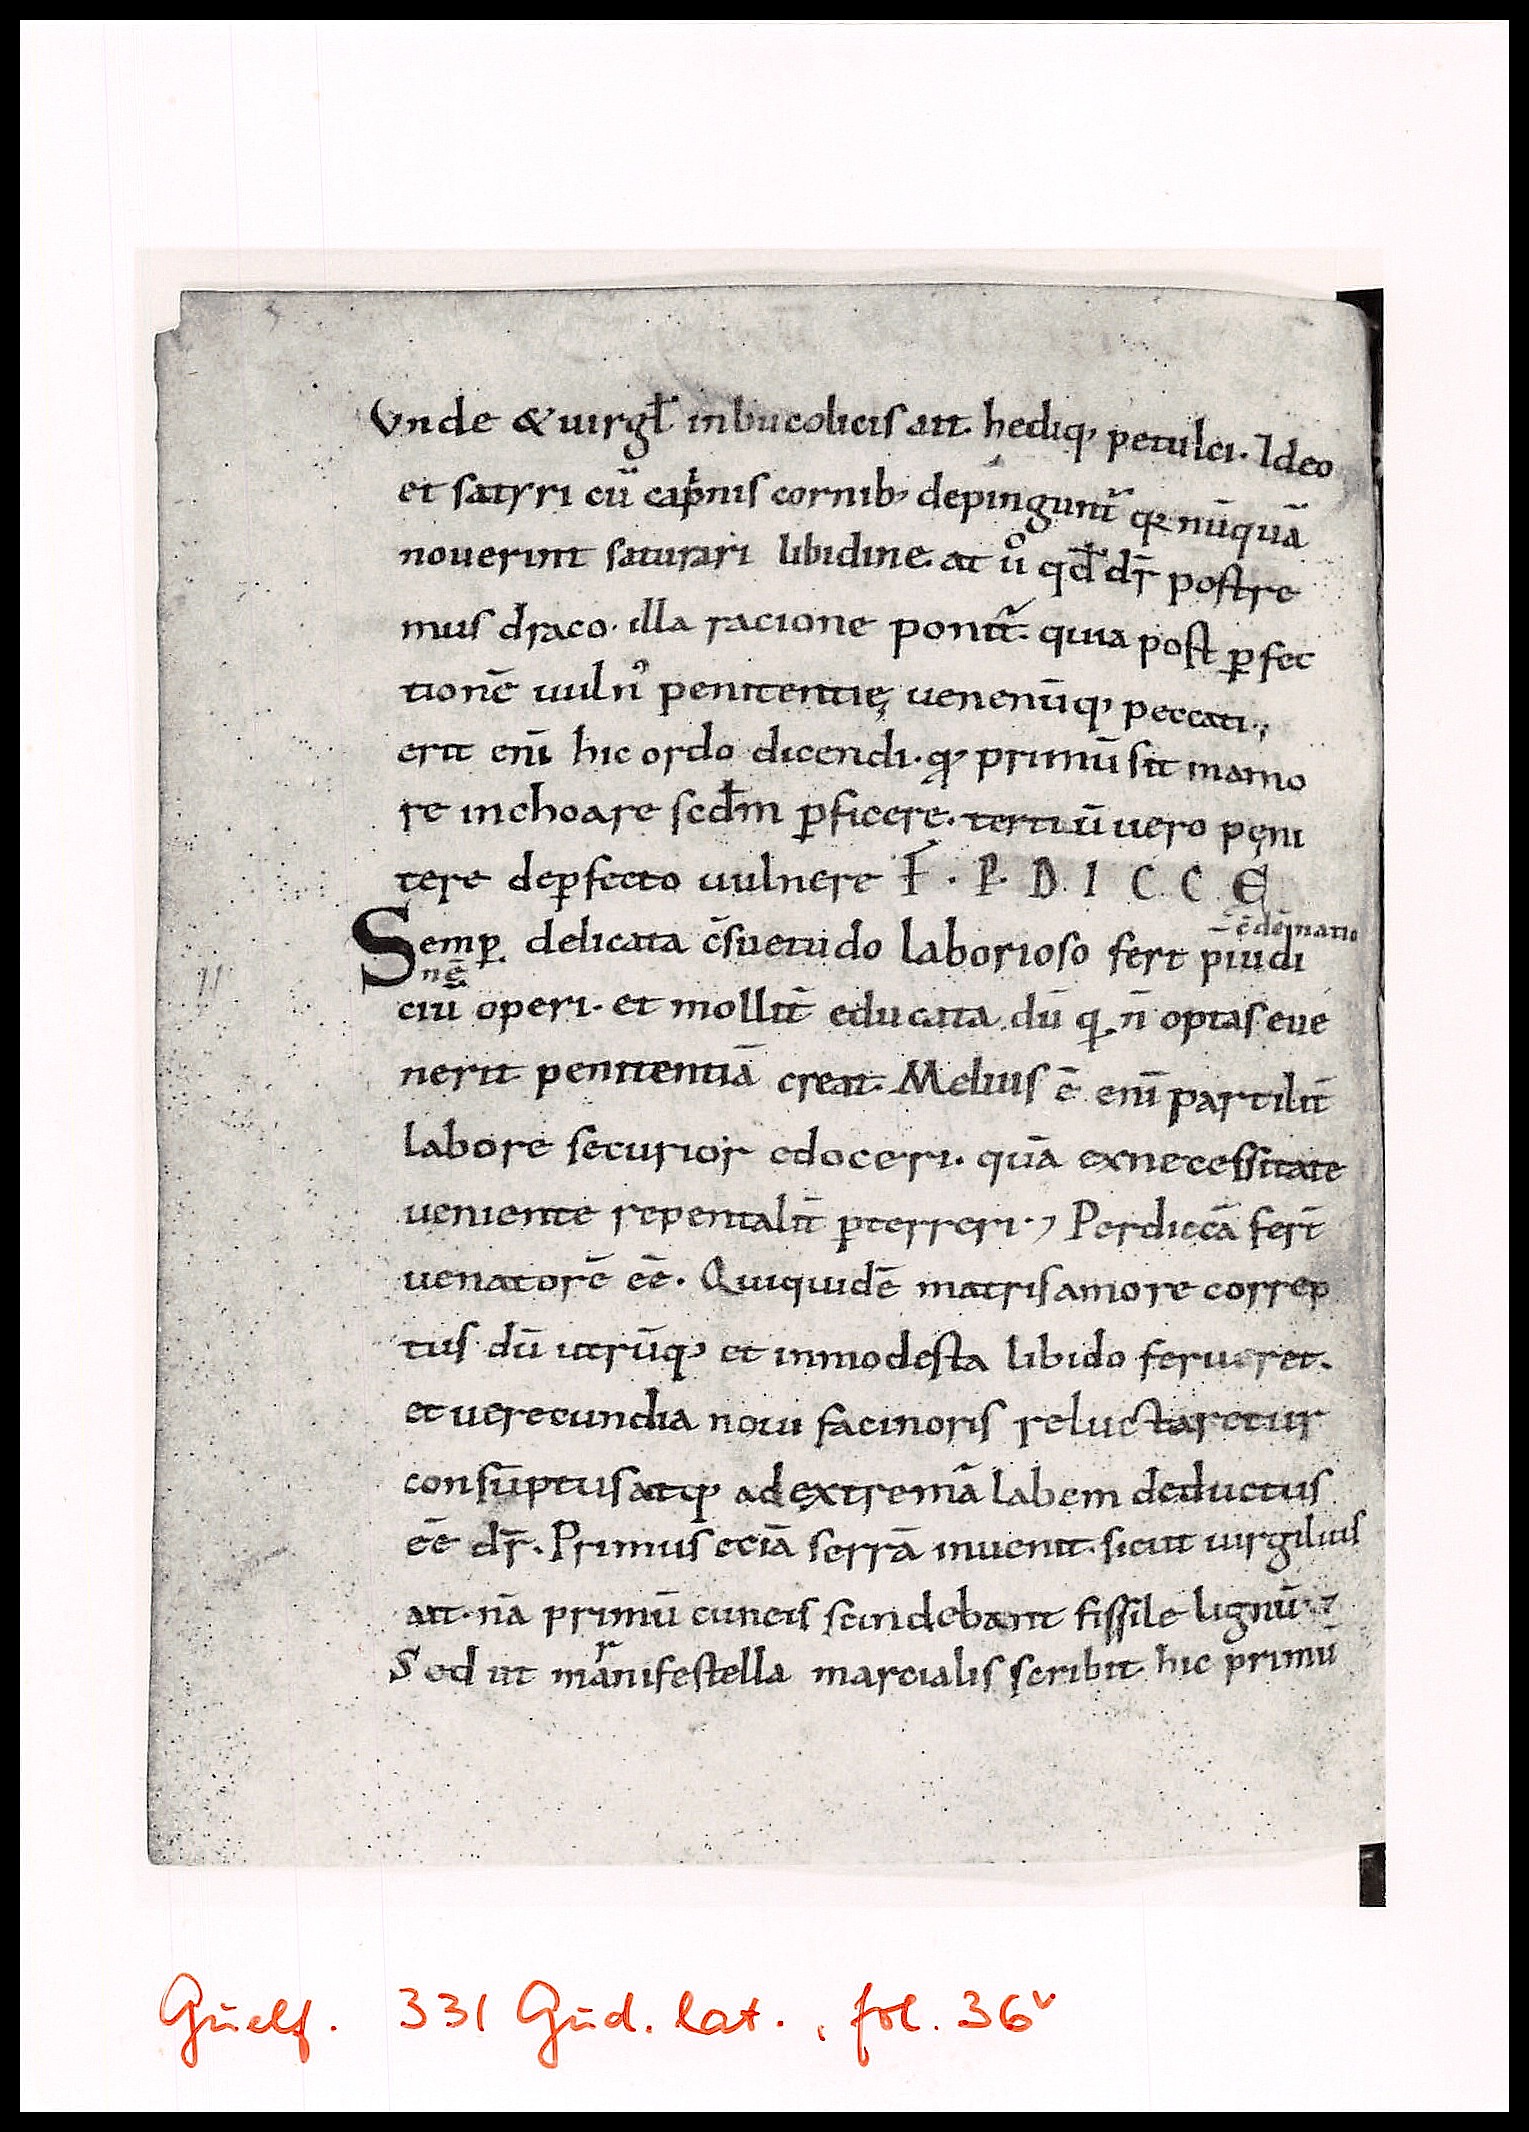 Vnde & uirgł in bucolicis ait. hediq; petulci. Ideo
et satyri cū cap̄nis cornib; depingunt̄ q̨ nūquā
nouerint saturari libidine. at uͦ qd̄ dr̄ postre
mus draco. illa racione ponit̄. quia post ꝑfec
tionē uuln᾽ penitentię uenenūq; peccati.,
erit enī hic ordo dicendi. qꝫ primū sit in amo
re inchoare scdm̄ ꝑficere. tertiū uero pęni
tere de ꝑfecto uulnere F . P. D. I C C E
c̄dēnatio
Semꝑ delicata c̄suetudo laborioso fert p̄iudi
nē
ciū operi. et mollit̄ educata dū q̨ n̄ optas eue
nerit penitentiā creat. Melius ē enī partilit̄
labore securior edoceri. quā ex necessitate
ueniente repentalit̄ ꝑterreri., Perdiccā fert̄
uenatorē eē. Qui quidē matris amore correp
tus dū utrūq; et inmodesta libido ferueret.
et uerecundia noui facinoris reluctaretur
consūptus atq; ad extremā labem deductus
eē dr̄. Primus eciā serrā inuenit. sicut uirgilius
ait. nā primū cuneis scindebant fissile lignū.,
r
Sed ut manifestella marcialis scribit hic primū
Guelf. 331 Gud. lat., fol. 36v